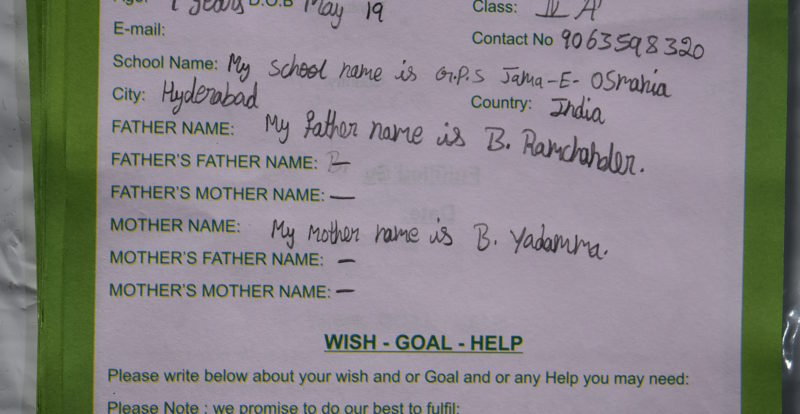 years D.O.B May 19 Class: IV A
E-mail: Contact No 9063598320
School Name: My school name is G.P.S Jama-E-OSmania
City: Hyderabad Country: India
FATHER NAME: My father name is B. Ramchahder.
FATHER'S FATHER NAME: —
FATHER'S MOTHER NAME: —
MOTHER NAME: My mother name is B. Yadamma.
MOTHER'S FATHER NAME: —
MOTHER'S MOTHER NAME: —
WISH - GOAL - HELP
Please write below about your wish and or Goal and or any Help you may need:
Please Note : we promise to do our best to fulfil: